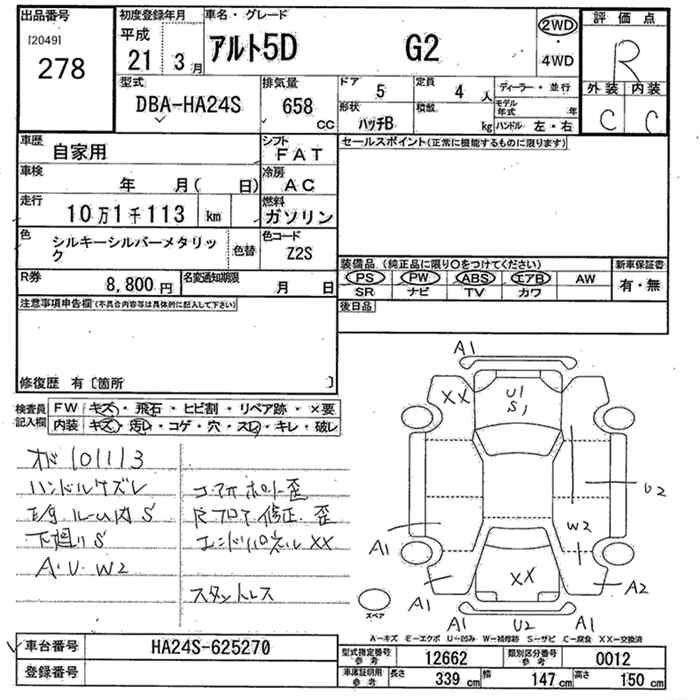 出品番号
[2049]
278
初度登録年月
平成
21 3月
車名・グレード
アルト5D G2
2WD
・
4WD
評価点
R
外装 内装
C C
型式
DBA-HA24S
排気量
658
CC
ドア
5
定員
4 人
ディーラー・並行
形状
ハッチB
積載
kg
モデル年式 年
ハンドル 左・右
車歴
自家用
シフト
FAT
セールスポイント(正常に機能するものに限ります)
車検
年 月( 日)
冷房
AC
走行
10万1千113 km
燃料
ガソリン
色
シルキーシルバーメタリック
色替
色コード
Z2S
装備品 (純正品に限り○をつけてください)
PS PW ABS エアB AW
SR ナビ TV カワ
新車保証書
有・無
R券
8,800円
名変通知期限
月 日
後日品
注意事項申告欄(不具合内容等は具体的に記入して下さい)
修復歴 有〔箇所 〕
検査員記入欄
FW キズ・飛石・ヒビ割・リペア跡・×要
内装 キズ・汚レ・コゲ・穴・スレ・キレ・破レ
オド101113
ハンドルケズレ
ルーム内S
下廻りS
A・U・W2
コーナーサポート歪
Rフロア修正・歪
エンドパネルXX
スタットレス
A1
XX
U1
S1
U2
W2
A1
XX
A1
A2
A1
U2
A1
スペア
A-キズ E-エクボ U-凹み W-補修跡 S-サビ C-腐食 XX-交換済
車台番号
HA24S-625270
登録番号
型式指定番号
参考
12662
類別区分番号
参考
0012
車庫証明用
参考
長さ 339 cm 幅 147 cm 高さ 150 cm